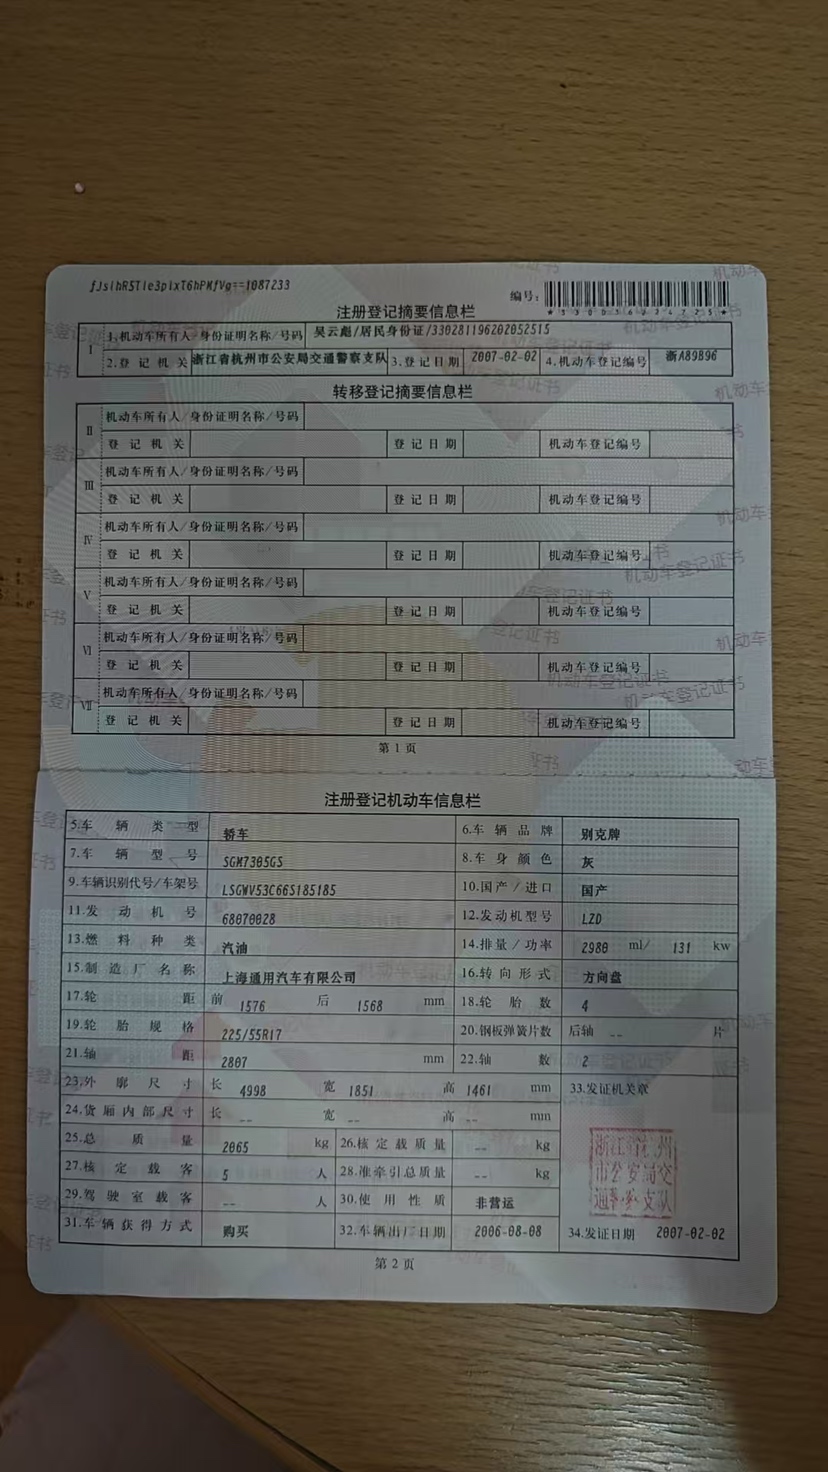 fJslhR5Tie3pixT6hPMfVg==1087233
编号：
*330036924725*
注册登记摘要信息栏
I 1.机动车所有人/身份证明名称/号码 吴云彪/居民身份证/330281196202052515
2.登记机关 浙江省杭州市公安局交通警察支队 3.登记日期 2007-02-02 4.机动车登记编号 浙A89B96
转移登记摘要信息栏
II 机动车所有人/身份证明名称/号码
登记机关 登记日期 机动车登记编号
III 机动车所有人/身份证明名称/号码
登记机关 登记日期 机动车登记编号
IV 机动车所有人/身份证明名称/号码
登记机关 登记日期 机动车登记编号
V 机动车所有人/身份证明名称/号码
登记机关 登记日期 机动车登记编号
VI 机动车所有人/身份证明名称/号码
登记机关 登记日期 机动车登记编号
VII 机动车所有人/身份证明名称/号码
登记机关 登记日期 机动车登记编号
第1页
注册登记机动车信息栏
5.车辆类型 轿车 6.车辆品牌 别克牌
7.车辆型号 SGM7305GS 8.车身颜色 灰
9.车辆识别代号/车架号 LSGWV53C66S185185 10.国产/进口 国产
11.发动机号 68070028 12.发动机型号 LZD
13.燃料种类 汽油 14.排量/功率 2980 ml/ 131 kw
15.制造厂名称 上海通用汽车有限公司 16.转向形式 方向盘
17.轮距 前 1576 后 1568 mm 18.轮胎数 4
19.轮胎规格 225/55R17 20.钢板弹簧片数 后轴 -- 片
21.轴距 2807 mm 22.轴数 2
23.外廓尺寸 长 4998 宽 1851 高 1461 mm 33.发证机关章
24.货厢内部尺寸 长 -- 宽 -- 高 -- mm
25.总质量 2065 kg 26.核定载质量 -- kg
27.核定载客 5 人 28.准牵引总质量 -- kg
29.驾驶室载客 -- 人 30.使用性质 非营运
31.车辆获得方式 购买 32.车辆出厂日期 2006-08-08 34.发证日期 2007-02-02
第2页